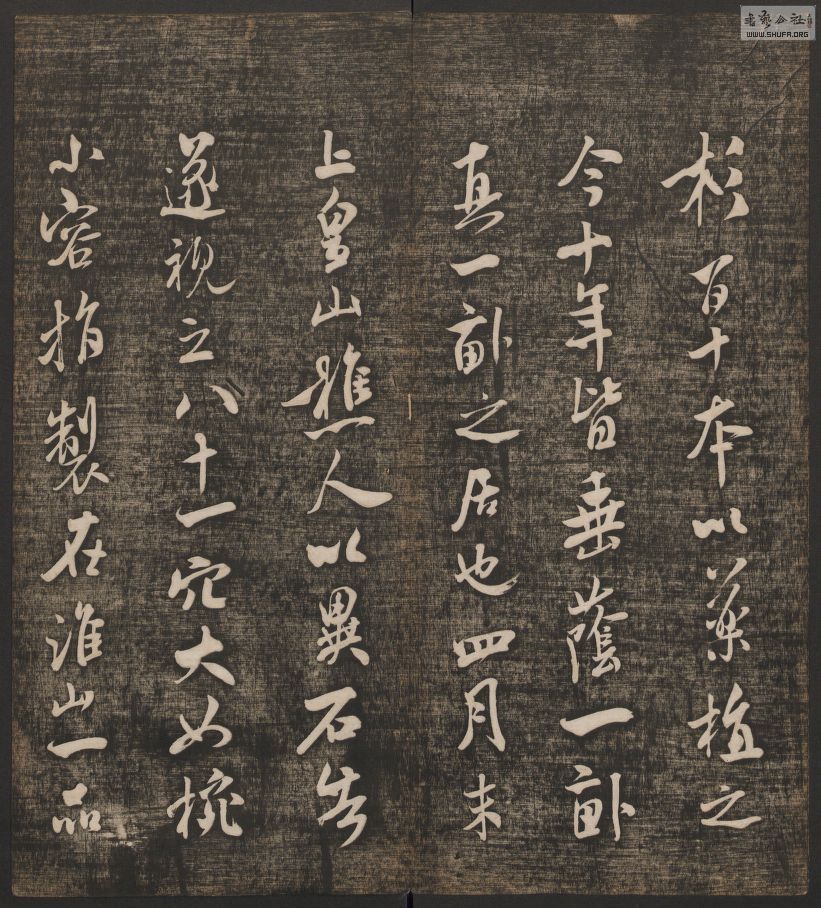 杉百十本以藥植之
今十年皆垂蔭一畝
真一畝之居也四月末
上皇山樵人以異石告
遂視之八十一穴大如椀
小容指製在淮山一品
書藝公社
WWW.SHUFA.ORG